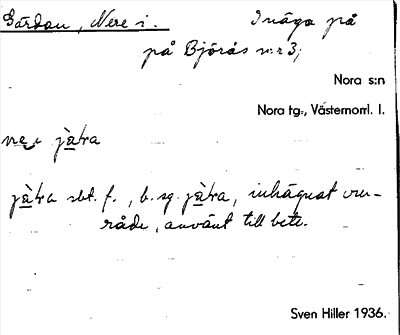 Gärdan, Nere i. Inäga på
på Björås nr 3;
Nora s:n
Nora tg., Västernorrl. l.
ne i jàtra
jàtra sbt. f., b. sg. jàtra, inhägnat om-
råde, använt till bete.
Sven Hiller 1936.